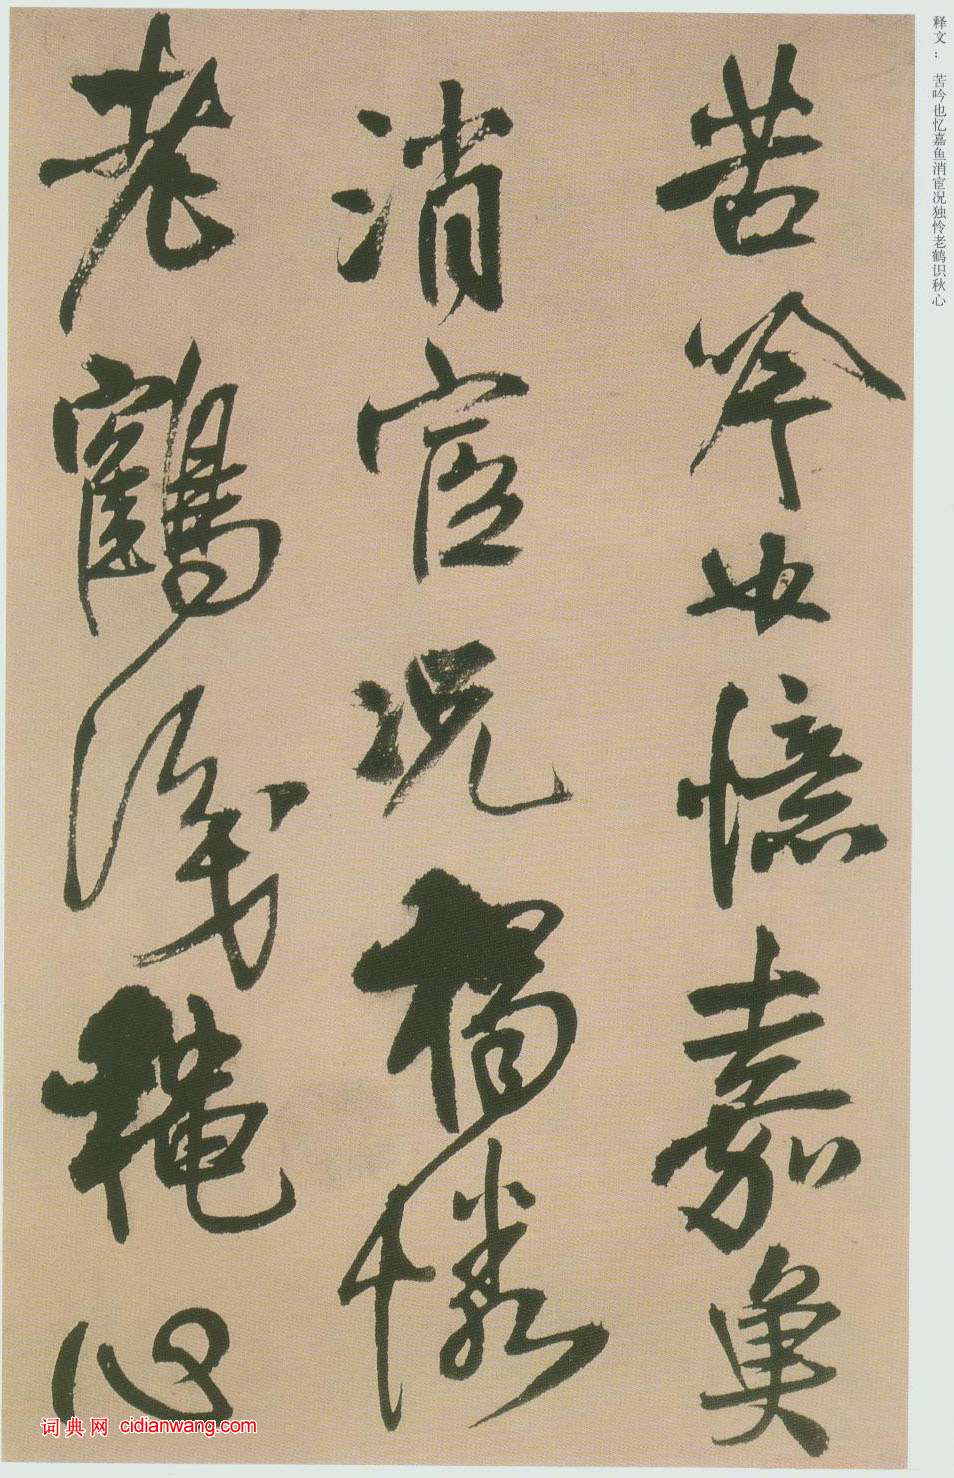 苦吟也憶嘉魚
消宦况獨憐
老鶴識秋心
释文：苦吟也忆嘉鱼消宦况独怜老鹤识秋心
词典网 cidianwang.com